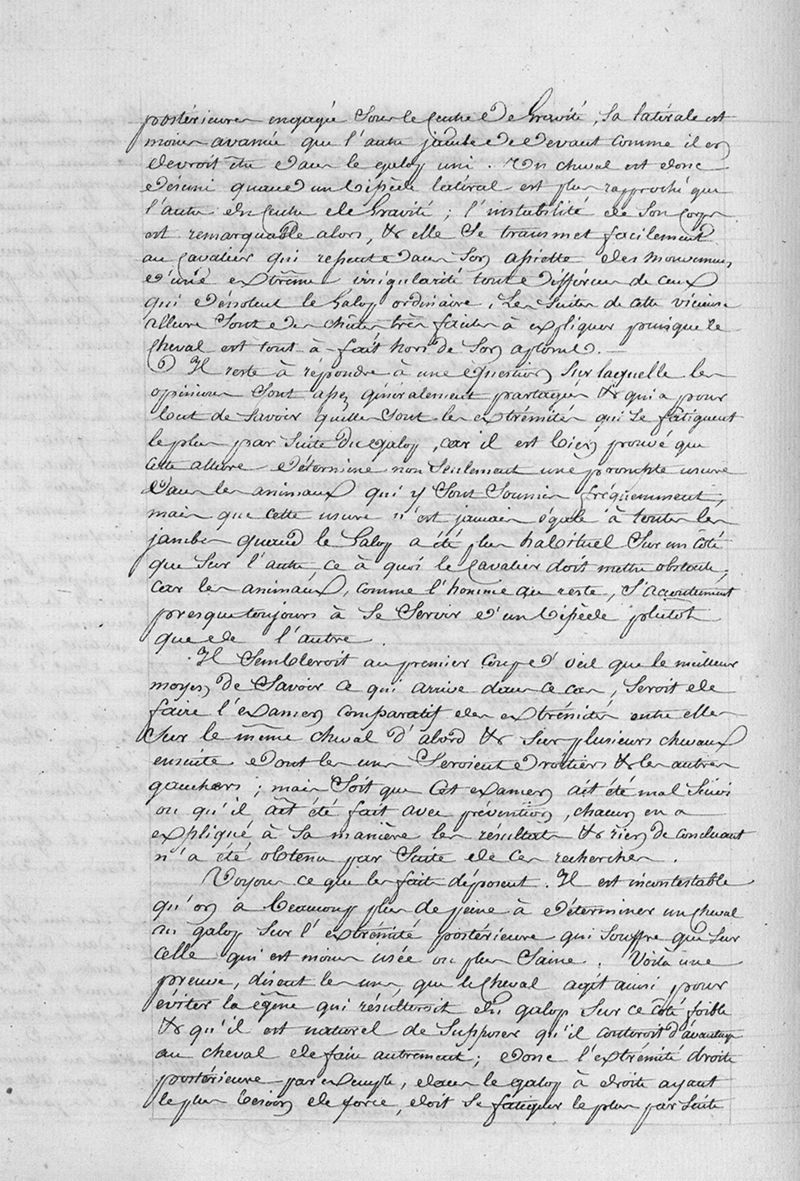 postérieures engagée sous le Centre de Gravité, sa latérale est
moins avancée que l'autre jambe de devant comme il en
devroit être dans le galop uni. Un cheval est donc
désuni quand un bipède latéral est plus rapproché que
l'autre du Centre de Gravité; l'instabilité de son Corps
est remarquable alors, & elle se transmet facilement
au Cavalier qui ressent dans son assiette des mouvemens
d'une extrême irrégularité tout différens de ceux
qui dessolent le Galop ordinaire. Les suites de cette vicieuse
allure sont des chûtes très faciles à expliquer puisque le
Cheval est tout à-fait hors de son aplomb.
Il reste à répondre à une question sur laquelle les
opinions sont assez généralement partagées & qui a pour
but de savoir quelles sont les extrémités qui se fatiguent
le plus par suite du galop, car il est bien prouvé que
cette allure détermine non seulement une prompte usure
dans les animaux qui y sont soumis fréquemment,
mais que cette usure n'est jamais égale à toutes les
jambes quand le Galop a été plus habituel sur un côté
que sur l'autre, ce à quoi le Cavalier doit mettre obstacle,
car les animaux, comme l'homme au reste, s'accoutument
presque toujours à se servir d'un bipède plutôt
que de l'autre.
Il sembleroit au premier coup d'œil que le meilleur
moyen de savoir ce qui arrive dans ce cas, seroit de
faire l'examen comparatif des extrémités entre elles
sur le même cheval d'abord & sur plusieurs chevaux
ensuite dont les uns seroient droitiers & les autres
gauchers; mais soit que cet examen ait été mal suivi
ou qu'il ait été fait avec prévention, chacun en a
expliqué à sa manière les résultats & rien de concluant
n'a été obtenu par suite de ces recherches.
Voyons ce que les faits déposent. Il est incontestable
qu'on a beaucoup plus de peine à déterminer un cheval
au galop sur l'extrémité postérieure qui souffre que sur
celle qui est moins usée ou plus saine. Voilà une
preuve, disent les uns, que le Cheval agit ainsi pour
éviter la gêne qui résulteroit du galop sur ce côté foible
& qu'il est naturel de supposer qu'il couteroit d'avantage
au cheval de faire autrement; donc l'extrémité droite
postérieure par exemple, dans le galop à droite ayant
le plus besoin de force, doit se fatiguer le plus par suite